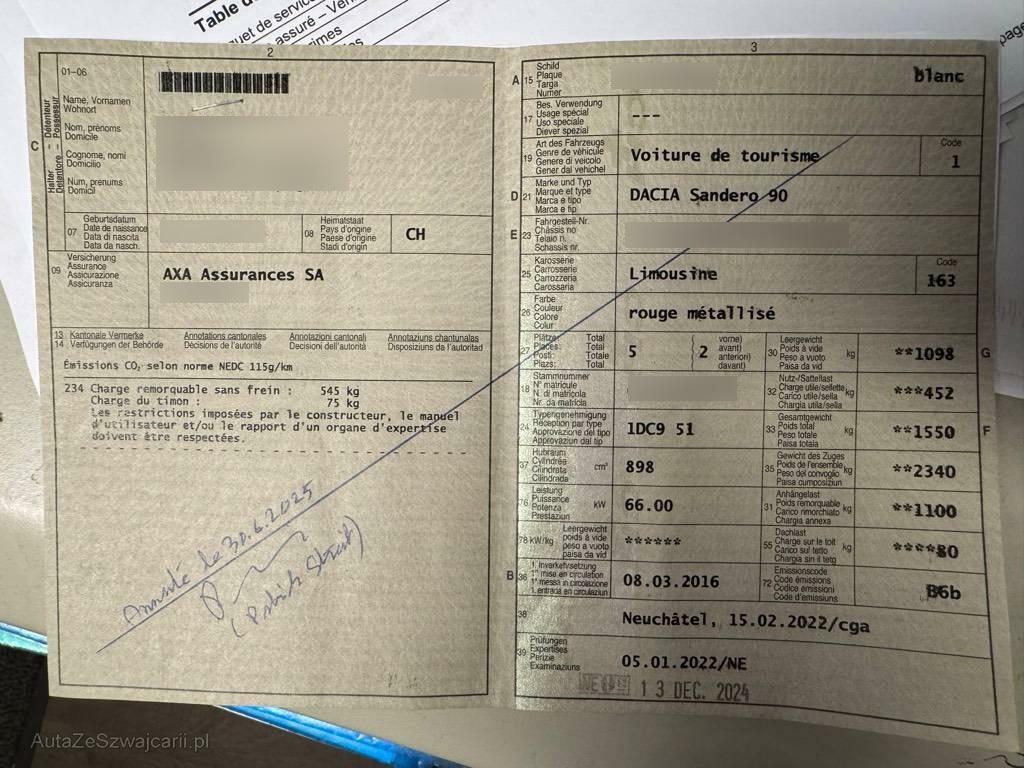 Table d
quet de servic
assuré – Véh
rimes
page
2
01–06
Halter – Détenteur
Detentore – Possessur
C
Name, Vornamen
Wohnort
Nom, prénoms
Domicile
Cognome, nomi
Domicilio
Num, prenums
Domicil
07
Geburtsdatum
Date de naissance
Data di nascita
Data da nasch.
08
Heimatstaat
Pays d'origine
Paese d'origine
Stadi d'origin
CH
09
Versicherung
Assurance
Assicurazione
Assicuranza
AXA Assurances SA
13 Kantonale Vermerke
14 Verfügungen der Behörde
Annotations cantonales
Décisions de l'autorité
Annotazioni cantonali
Decisioni dell'autorità
Annotaziuns chantunalas
Disposiziuns da l'autoritad
Émissions CO₂ selon norme NEDC 115g/km
234 Charge remorquable sans frein : 545 kg
Charge du timon : 75 kg
Les restrictions imposées par le constructeur, le manuel
d'utilisateur et/ou le rapport d'un organe d'expertise
doivent être respectées.
Annulé le 30.6.2025
3
A 15
Schild
Plaque
Targa
Numer
blanc
17
Bes. Verwendung
Usage spécial
Uso speciale
Diever spezial
---
19
Art des Fahrzeugs
Genre de véhicule
Genere di veicolo
Gener dal vehichel
Voiture de tourisme
Code
1
D 21
Marke und Typ
Marque et type
Marca e tipo
Marca e tip
DACIA Sandero 90
E 23
Fahrgestell-Nr.
Châssis no
Telaio n.
Schassis nr.
25
Karosserie
Carrosserie
Carrozzeria
Carossaria
Limousine
Code
163
26
Farbe
Couleur
Colore
Colur
rouge métallisé
27
Plätze: Total
Places: Total
Posti: Totale
Plazs: Total
5
vorne)
avant)
anteriori)
davant)
2
30
Leergewicht
Poids à vide
Peso a vuoto
Paisa da vid
kg
**1098
G
18
Stammnummer
N° matricule
N. di matricola
Nr. da matricla
32
Nutz-/Sattellast
Charge utile/sellette
Carico utile/sella
Chargia utila/sella
kg
***452
24
Typengenehmigung
Réception par type
Approvazione del tipo
Approvaziun dal tip
1DC9 51
33
Gesamtgewicht
Poids total
Peso totale
Paisa totala
kg
**1550
F
37
Hubraum
Cylindrée
Cilindrata
Cilindrada
cm³
898
35
Gewicht des Zuges
Poids de l'ensemble
Peso del convoglio
Paisa cumposiziun
kg
**2340
76
Leistung
Puissance
Potenza
Prestaziun
kW
66.00
31
Anhängelast
Poids remorquable
Carico rimorchiato
Chargia annexa
kg
**1100
78 kW/kg
Leergewicht
poids à vide
peso a vuoto
paisa da vid
******
55
Dachlast
Charge sur le toit
Carico sul tetto
Chargia sin il tetg
kg
****80
B 36
1. Inverkehrsetzung
1re mise en circulation
1a messa in circolazione
1. entrada en circulaziun
08.03.2016
72
Emissionscode
Code émissions
Codice emissioni
Code d'emissiuns
B6b
38
Neuchâtel, 15.02.2022/cga
39
Prüfungen
Expertises
Perizie
Examinaziuns
05.01.2022/NE
NE
13 DEC. 2024
AutaZeSzwajcarii.pl